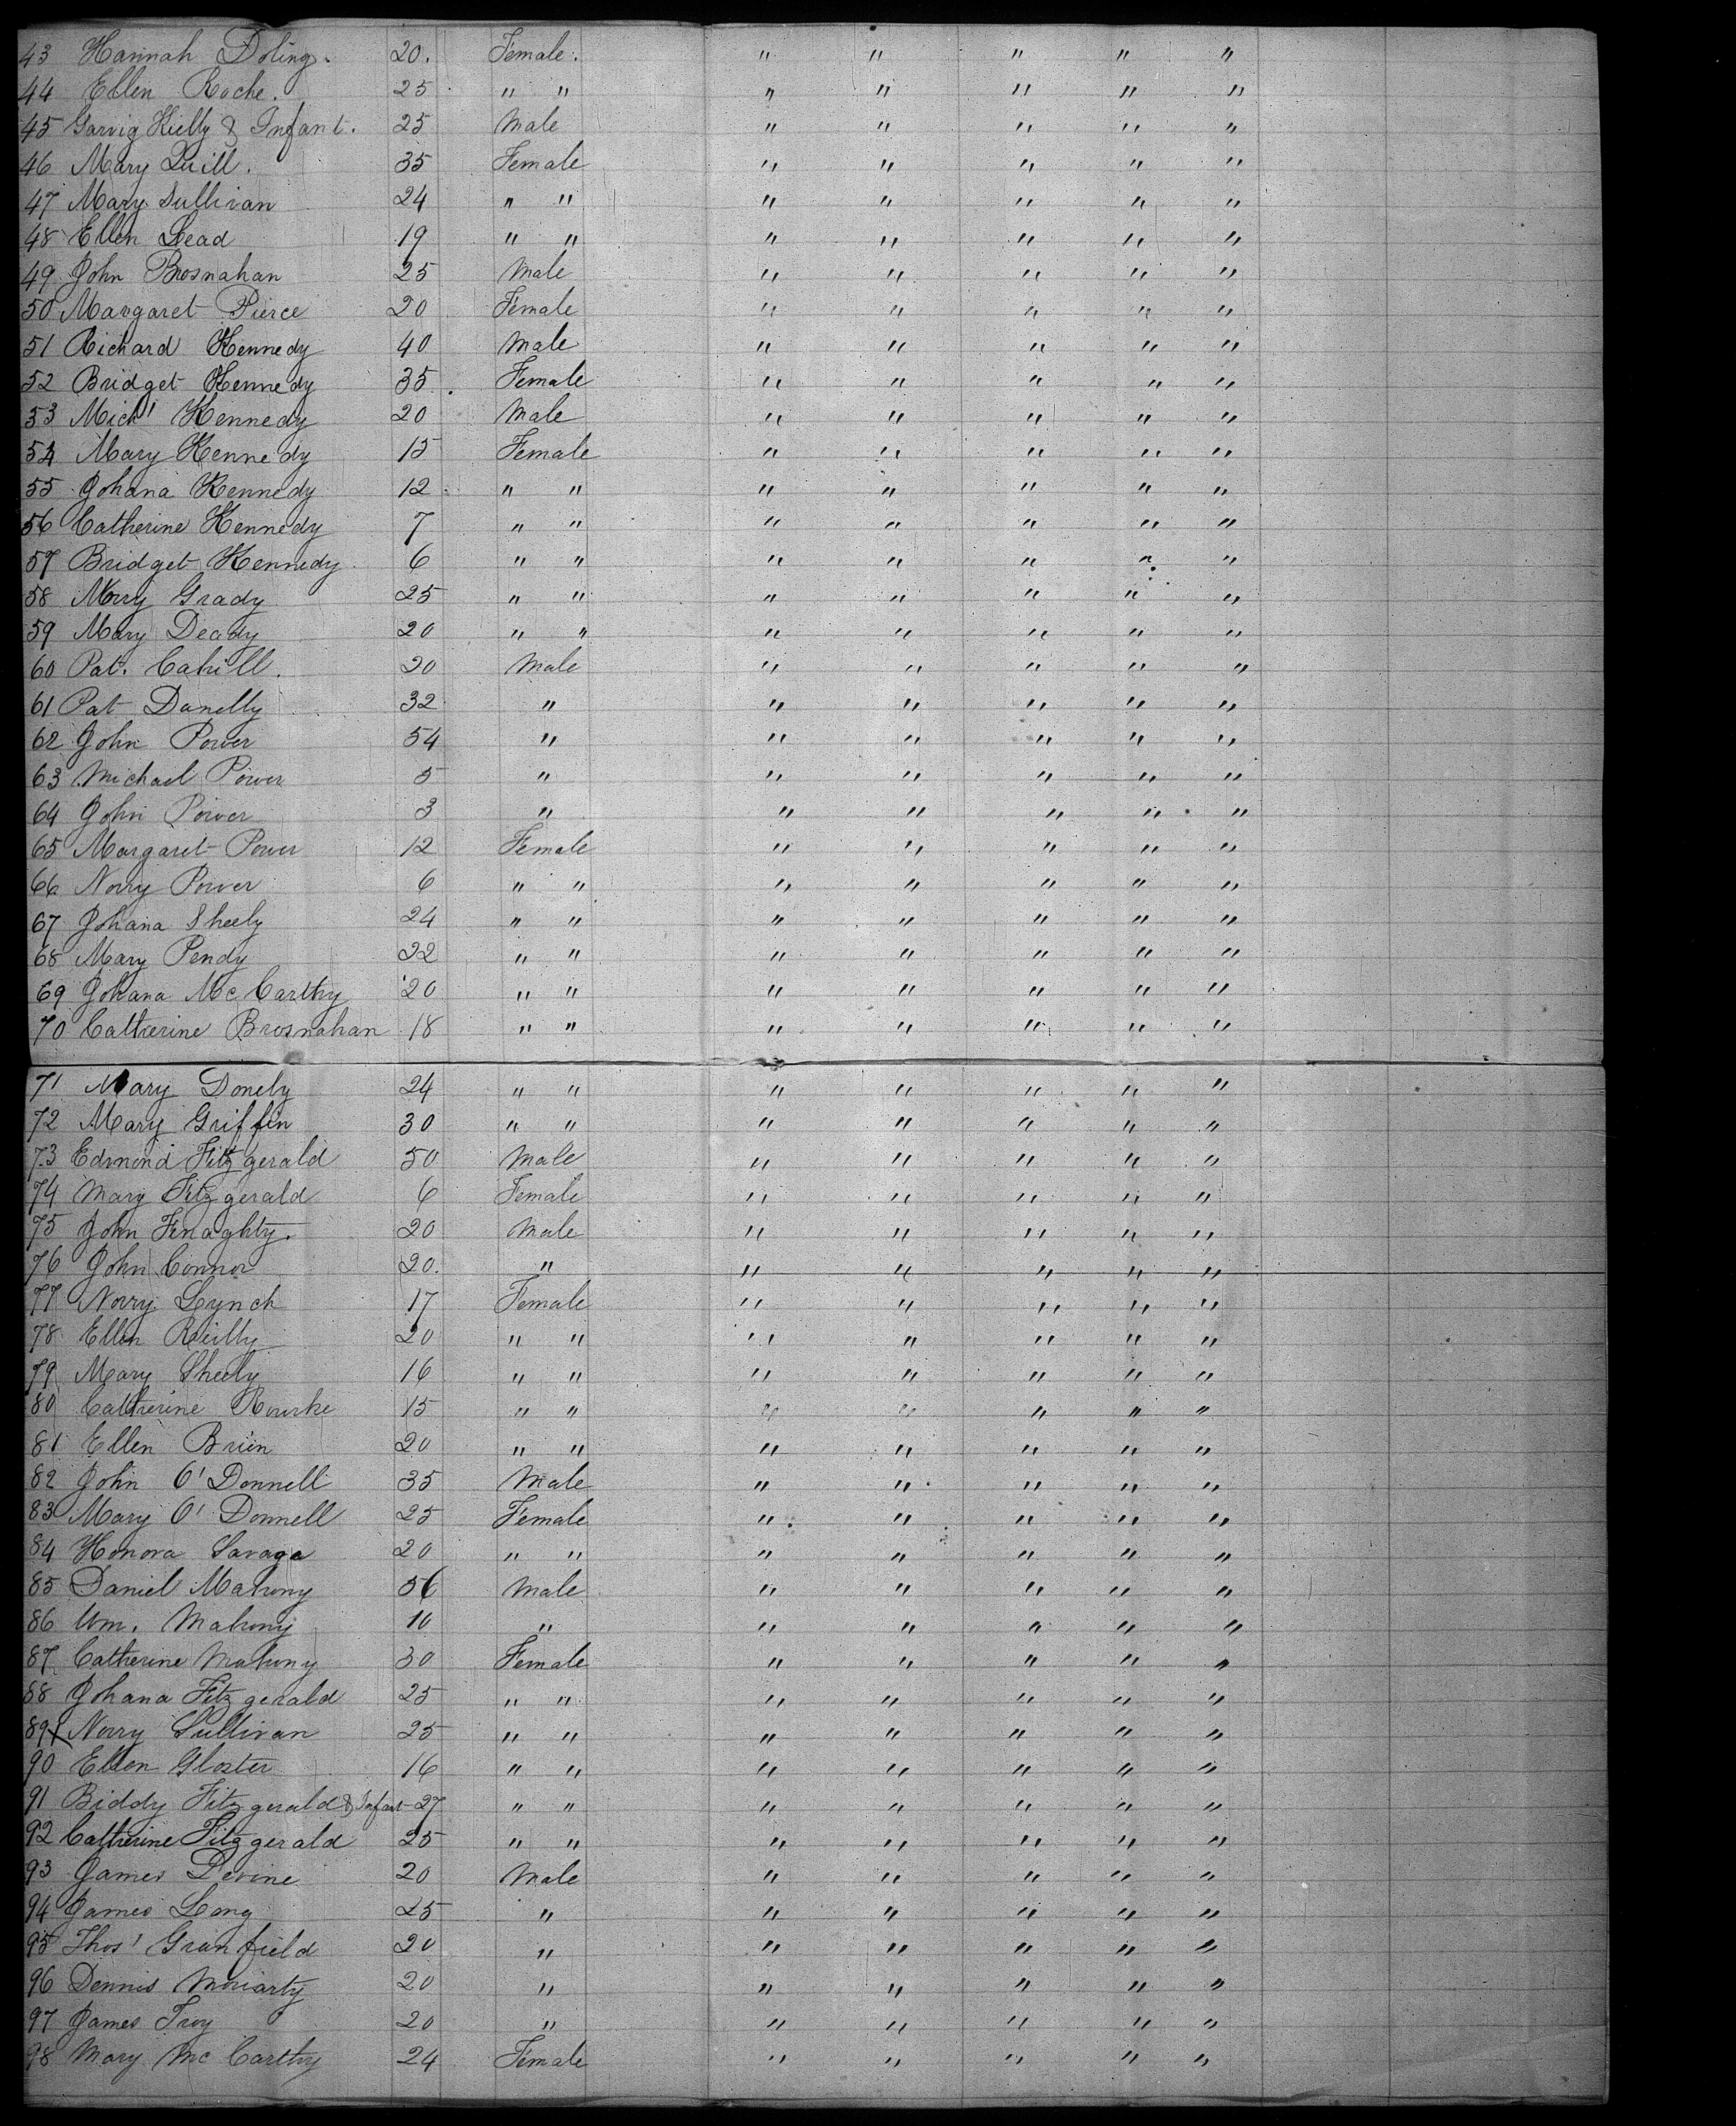 43 Hannah Doling. 20. Female. " " " " "
44 Ellen Roche. 25 " " " " " " "
45 Garvig Kielly & Infant. 25 Male " " " " "
46 Mary Quill. 35 Female " " " " "
47 Mary Sullivan 24 " " " " " " "
48 Ellen Lead 19 " " " " " " "
49 John Brosnahan 25 Male " " " " "
50 Margaret Pierce 20 Female " " " " "
51 Richard Kennedy 40 Male " " " " "
52 Bridget Kennedy 35 Female " " " " "
53 Mich' Kennedy 20 Male " " " " "
54 Mary Kennedy 15 Female " " " " "
55 Johana Kennedy 12 " " " " " " "
56 Catherine Kennedy 7 " " " " " " "
57 Bridget Kennedy 6 " " " " " " "
58 Grady 25 " " " " " " "
59 Mary Deady 20 " " " " " " "
60 Pat. Cahill. 20 Male " " " " "
61 Pat Danelly 32 " " " " " "
62 John Power 54 " " " " " "
63 Michael Power 5 " " " " " "
64 John Power 3 " " " " " "
65 Margaret Power 12 Female " " " " "
66 Norry Power 6 " " " " " " "
67 Johana Sheely 24 " " " " " " "
68 Mary Pendy 22 " " " " " " "
69 Johana McCarthy 20 " " " " " " "
70 Catherine Brosnahan 18 " " " " " " "
71 Mary Donely 24 " " " " " " "
72 Mary Griffin 30 " " " " " " "
73 Edmond Fitzgerald 50 Male " " " " "
74 Mary Fitzgerald 6 Female " " " " "
75 John Fenaghty. 20 Male " " " " "
76 John Connor 20. " " " " " "
77 Norry Lynch 17 Female " " " " "
78 Ellen Reilly 20 " " " " " " "
79 Mary Sheely 16 " " " " " " "
80 Catherine Rourke 15 " " " " " " "
81 Ellen Brien 20 " " " " " " "
82 John O'Donnell 35 Male " " " " "
83 Mary O'Donnell 25 Female " " " " "
84 Honora Savage 20 " " " " " " "
85 Daniel Mahony 56 Male " " " " "
86 Wm. Mahony 10 " " " " " "
87 Catherine Mahony 30 Female " " " " "
88 Johana Fitzgerald 25 " " " " " " "
89 Norry Sullivan 25 " " " " " " "
90 Ellen Gloster 16 " " " " " " "
91 Biddy Fitzgerald & Infant 27 " " " " " " "
92 Catherine Fitzgerald 25 " " " " " " "
93 James Devine 20 Male " " " " "
94 James Long 25 " " " " " "
95 Thos' Granfield 20 " " " " " "
96 Dennis Moriarty 20 " " " " " "
97 James Troy 20 " " " " " "
98 Mary McCarthy 24 Female " " " " "